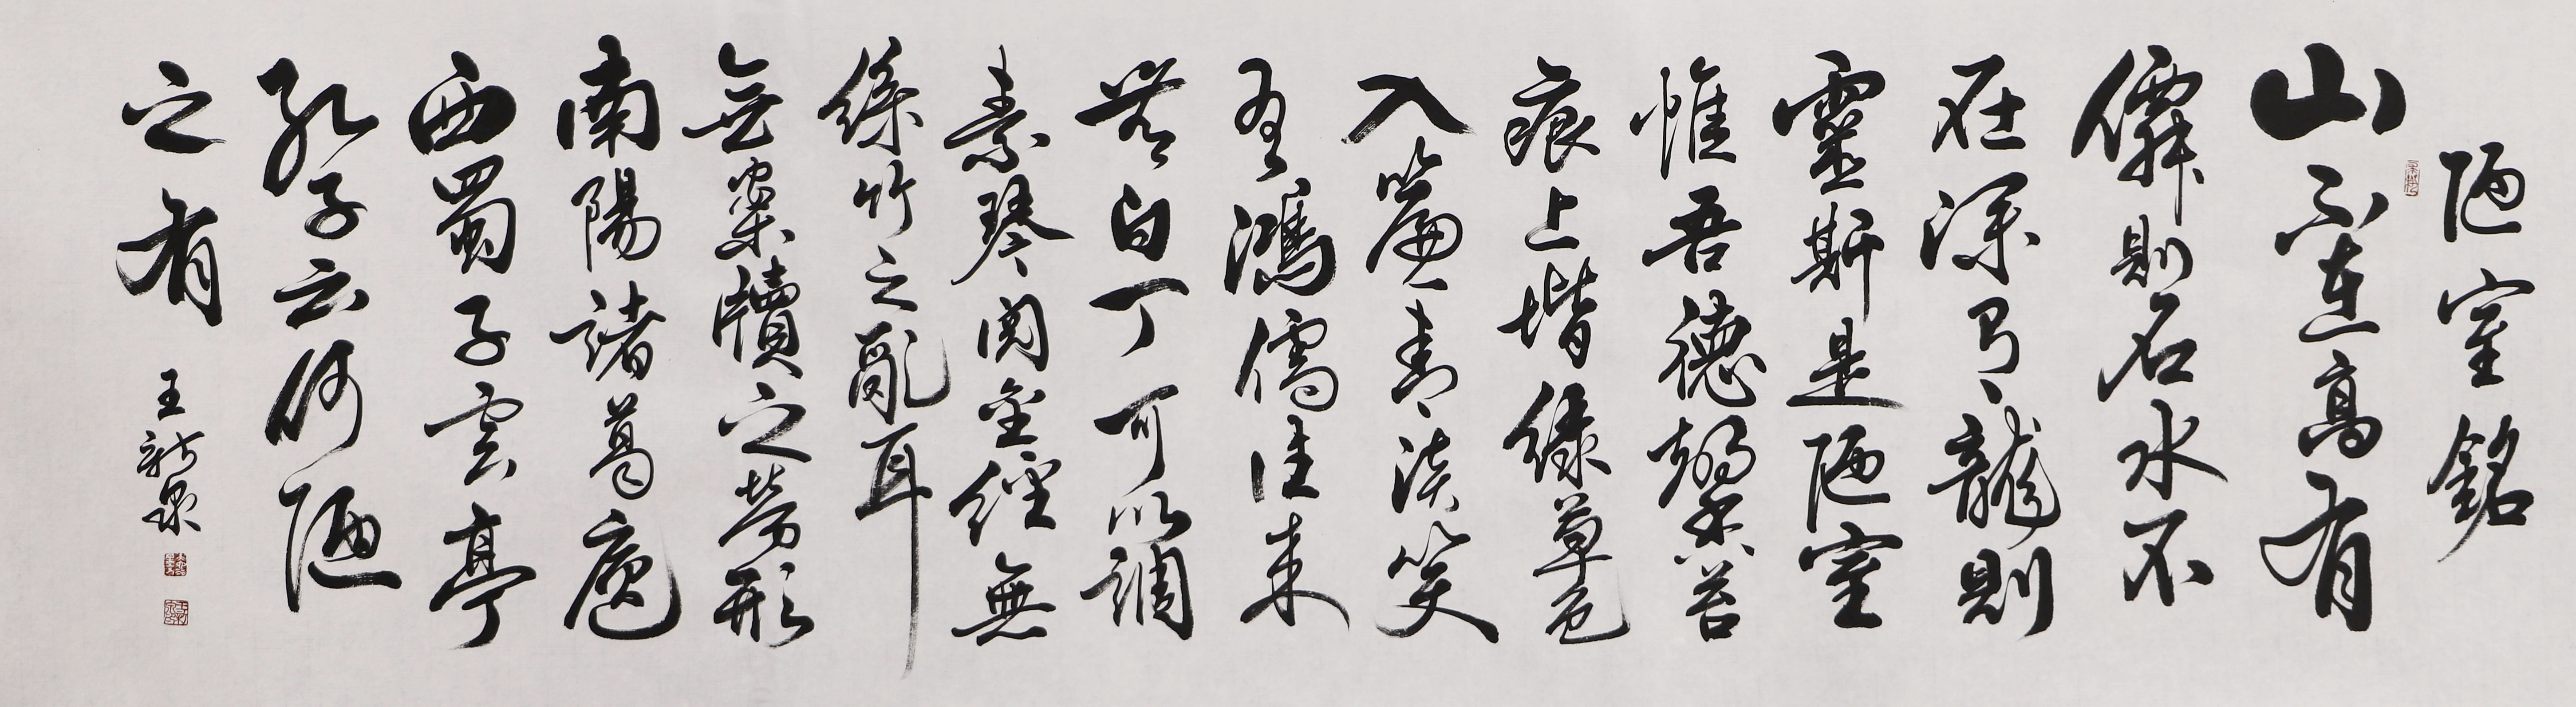 陋室銘
山不在高有
僊則名水不
在深有龍則
靈斯是陋室
惟吾德馨苔
痕上堦綠草色
入簾青談笑
有鴻儒往来
無白丁可以調
素琴閱金經無
絲竹之亂耳
無案牘之勞形
南陽諸葛廬
西蜀子雲亭
孔子云何陋
之有
王新泉